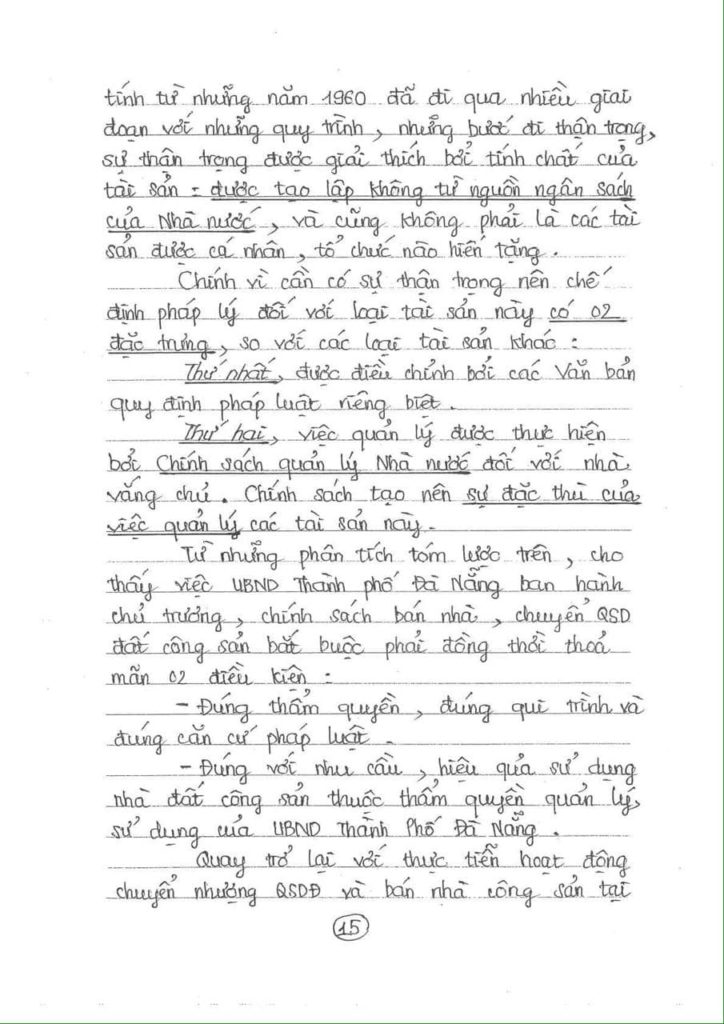 tính từ những năm 1960 đã đi qua nhiều giai
đoạn với những quy trình, những bước đi thận trọng,
sự thận trọng được giải thích bởi tính chất của
tài sản = được tạo lập không từ nguồn ngân sách
của Nhà nước, và cũng không phải là các tài
sản được cá nhân, tổ chức nào hiến tặng.
Chính vì cần có sự thận trọng nên chế
định pháp lý đối với loại tài sản này có 02
đặc trưng, so với các loại tài sản khác :
Thứ nhất, được điều chỉnh bởi các Văn bản
quy định pháp luật riêng biệt.
Thứ hai, việc quản lý được thực hiện
bởi Chính sách quản lý Nhà nước đối với nhà
vắng chủ. Chính sách tạo nên sự đặc thù của
việc quản lý các tài sản này.
Từ những phân tích tóm lược trên, cho
thấy việc UBND Thành phố Đà Nẵng ban hành
chủ trương, chính sách bán nhà, chuyển QSD
đất công sản bắt buộc phải đồng thời thoả
mãn 02 điều kiện :
- Đúng thẩm quyền, đúng qui trình và
đúng căn cứ pháp luật.
- Đúng với nhu cầu, hiệu quả sử dụng
nhà đất công sản thuộc thẩm quyền quản lý,
sử dụng của UBND Thành Phố Đà Nẵng.
Quay trở lại với thực tiễn hoạt động
chuyển nhượng QSDĐ và bán nhà công sản tại
15